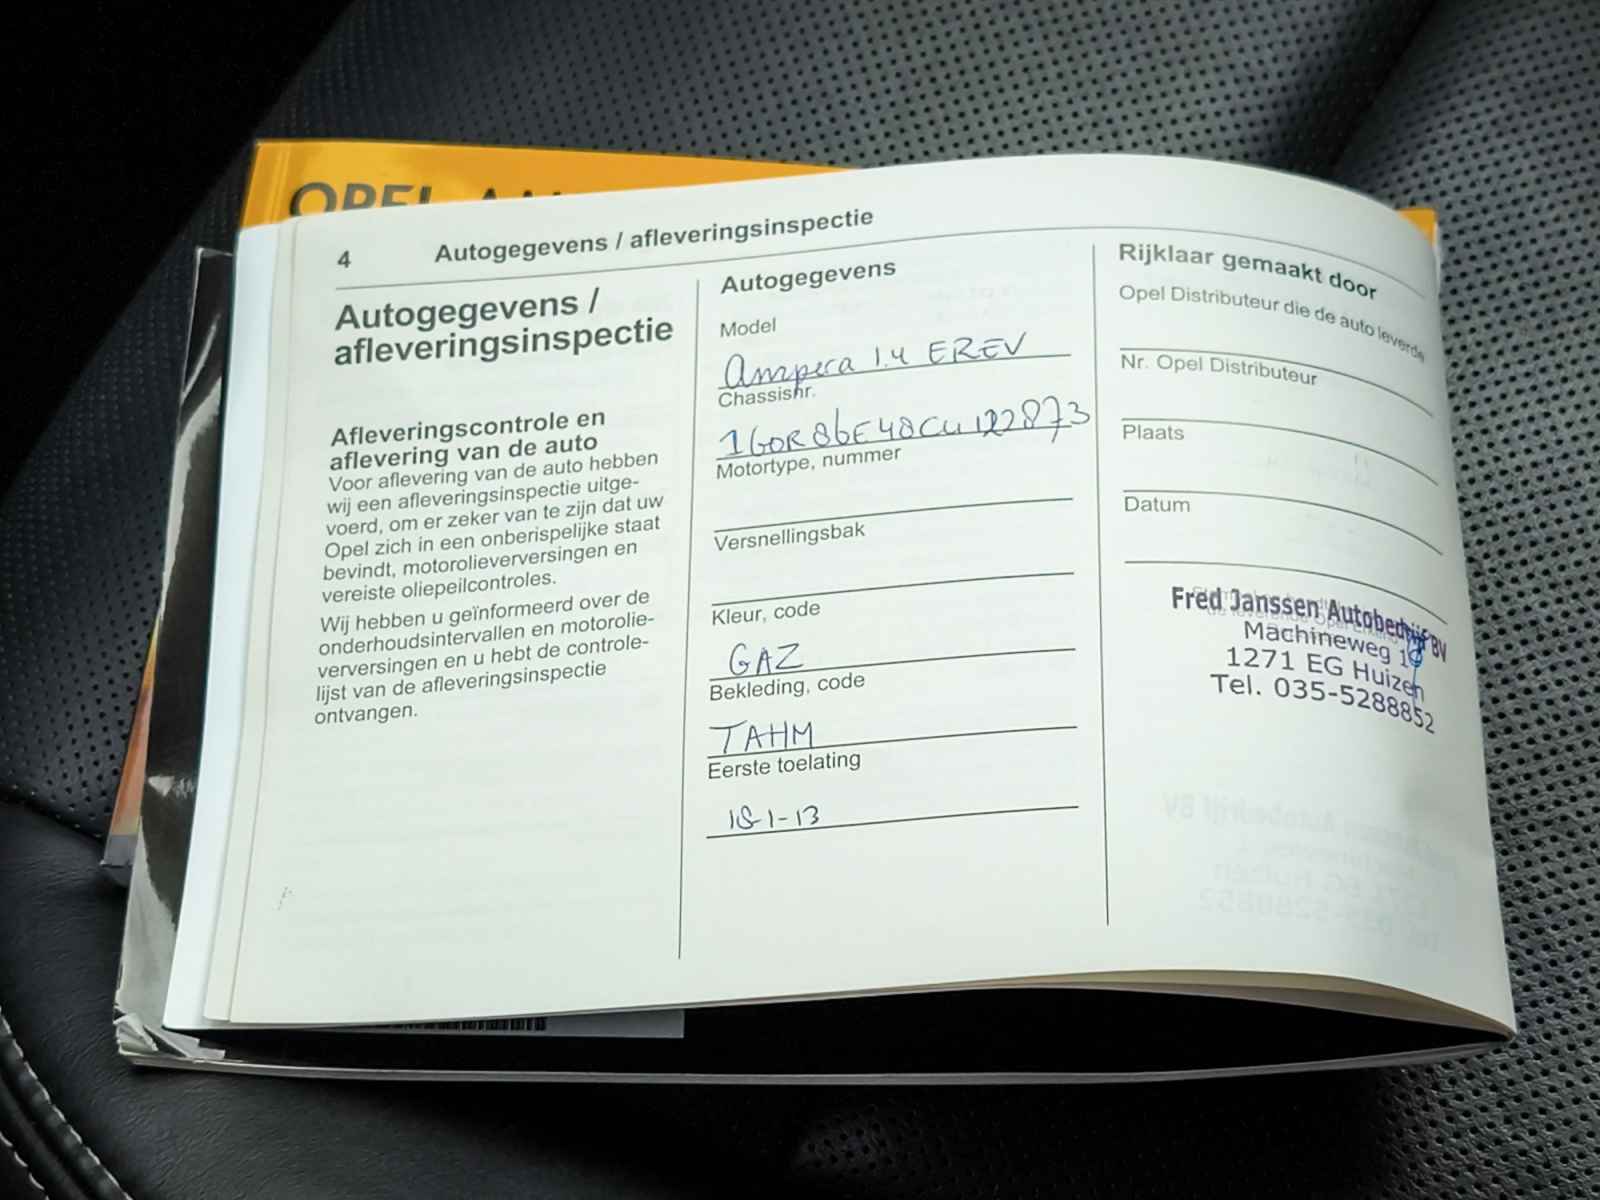 OPEL AM
4 Autogegevens / afleveringsinspectie
Autogegevens /
afleveringsinspectie
Afleveringscontrole en
aflevering van de auto
Voor aflevering van de auto hebben
wij een afleveringsinspectie uitge-
voerd, om er zeker van te zijn dat uw
Opel zich in een onberispelijke staat
bevindt, motorolieverversingen en
vereiste oliepeilcontroles.
Wij hebben u geïnformeerd over de
onderhoudsintervallen en motorolie-
verversingen en u hebt de controle-
lijst van de afleveringsinspectie
ontvangen.
Autogegevens
Model
Ampera 1.4 EREV
Chassisnr.
1G0R86E48CU122873
Motortype, nummer
Versnellingsbak
Kleur, code
GAZ
Bekleding, code
TAHM
Eerste toelating
18-1-13
Rijklaar gemaakt door
Opel Distributeur die de auto leverde
Nr. Opel Distributeur
Plaats
Datum
Fred Janssen Autobedrijf BV
Machineweg
1271 EG Huizen
Tel. 035-5288852